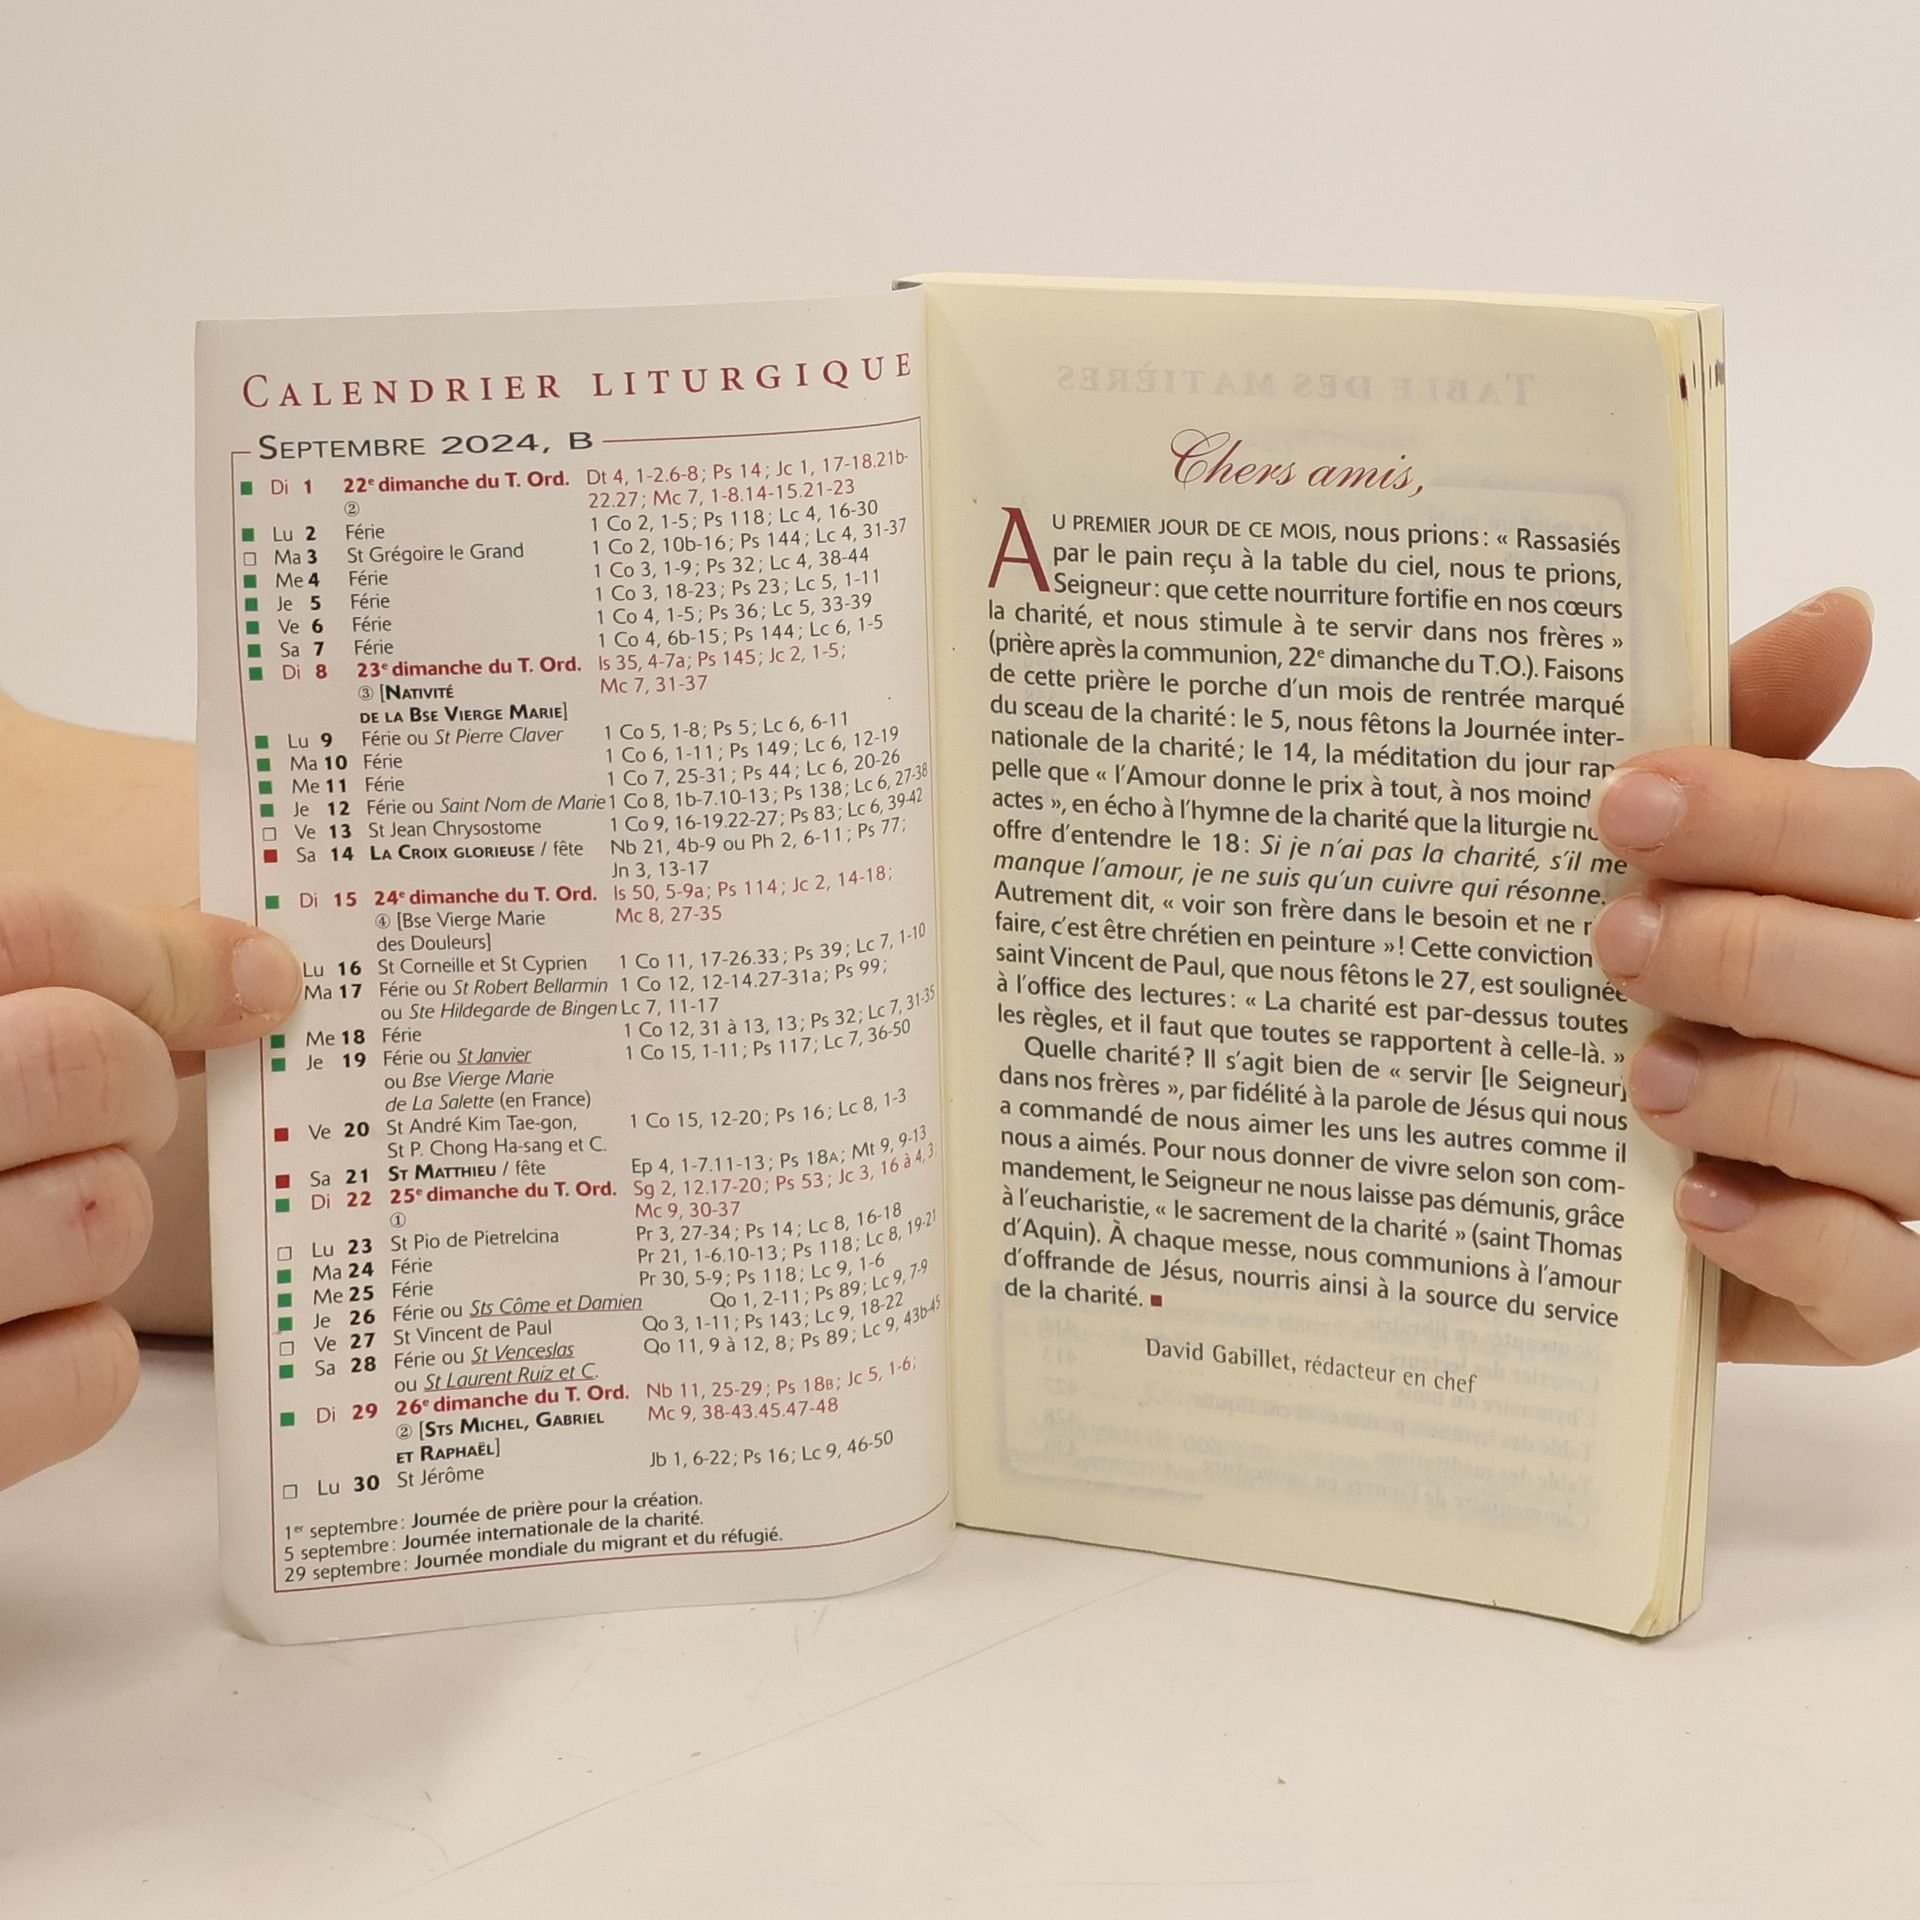 CALENDRIER LITURGIQUE
SEPTEMBRE 2024, B
Di 1 22e dimanche du T. Ord. Dt 4, 1-2.6-8; Ps 14; Jc 1, 17-18.21b-
② 22.27; Mc 7, 1-8.14-15.21-23
Lu 2 Férie 1 Co 2, 1-5; Ps 118; Lc 4, 16-30
Ma 3 St Grégoire le Grand 1 Co 2, 10b-16; Ps 144; Lc 4, 31-37
Me 4 Férie 1 Co 3, 1-9; Ps 32; Lc 4, 38-44
Je 5 Férie 1 Co 3, 18-23; Ps 23; Lc 5, 1-11
Ve 6 Férie 1 Co 4, 1-5; Ps 36; Lc 5, 33-39
Sa 7 Férie 1 Co 4, 6b-15; Ps 144; Lc 6, 1-5
Di 8 23e dimanche du T. Ord. Is 35, 4-7a; Ps 145; Jc 2, 1-5;
③ [NATIVITÉ Mc 7, 31-37
DE LA BSE VIERGE MARIE]
Lu 9 Férie ou St Pierre Claver 1 Co 5, 1-8; Ps 5; Lc 6, 6-11
Ma 10 Férie 1 Co 6, 1-11; Ps 149; Lc 6, 12-19
Me 11 Férie 1 Co 7, 25-31; Ps 44; Lc 6, 20-26
Je 12 Férie ou Saint Nom de Marie 1 Co 8, 1b-7.10-13; Ps 138; Lc 6, 27-38
Ve 13 St Jean Chrysostome 1 Co 9, 16-19.22-27; Ps 83; Lc 6, 39-42
Sa 14 LA CROIX GLORIEUSE / fête Nb 21, 4b-9 ou Ph 2, 6-11; Ps 77;
Jn 3, 13-17
Di 15 24e dimanche du T. Ord. Is 50, 5-9a; Ps 114; Jc 2, 14-18;
④ [Bse Vierge Marie Mc 8, 27-35
des Douleurs]
Lu 16 St Corneille et St Cyprien 1 Co 11, 17-26.33; Ps 39; Lc 7, 1-10
Ma 17 Férie ou St Robert Bellarmin 1 Co 12, 12-14.27-31a; Ps 99;
ou Ste Hildegarde de Bingen Lc 7, 11-17
Me 18 Férie 1 Co 12, 31 à 13, 13; Ps 32; Lc 7, 31-35
Je 19 Férie ou St Janvier 1 Co 15, 1-11; Ps 117; Lc 7, 36-50
ou Bse Vierge Marie
de La Salette (en France)
Ve 20 St André Kim Tae-gon, 1 Co 15, 12-20; Ps 16; Lc 8, 1-3
St P. Chong Ha-sang et C.
Sa 21 ST MATTHIEU / fête Ep 4, 1-7.11-13; Ps 18A; Mt 9, 9-13
Di 22 25e dimanche du T. Ord. Sg 2, 12.17-20; Ps 53; Jc 3, 16 à 4, 3;
① Mc 9, 30-37
Lu 23 St Pio de Pietrelcina Pr 3, 27-34; Ps 14; Lc 8, 16-18
Ma 24 Férie Pr 21, 1-6.10-13; Ps 118; Lc 8, 19-21
Me 25 Férie Pr 30, 5-9; Ps 118; Lc 9, 1-6
Je 26 Férie ou Sts Côme et Damien Qo 1, 2-11; Ps 89; Lc 9, 7-9
Ve 27 St Vincent de Paul Qo 3, 1-11; Ps 143; Lc 9, 18-22
Sa 28 Férie ou St Venceslas Qo 11, 9 à 12, 8; Ps 89; Lc 9, 43b-45
ou St Laurent Ruiz et C.
Di 29 26e dimanche du T. Ord. Nb 11, 25-29; Ps 18B; Jc 5, 1-6;
② [STS MICHEL, GABRIEL Mc 9, 38-43.45.47-48
ET RAPHAËL]
Lu 30 St Jérôme Jb 1, 6-22; Ps 16; Lc 9, 46-50
1er septembre: Journée de prière pour la création.
5 septembre: Journée internationale de la charité.
29 septembre: Journée mondiale du migrant et du réfugié.
Chers amis,
AU PREMIER JOUR DE CE MOIS, nous prions: « Rassasiés
par le pain reçu à la table du ciel, nous te prions,
Seigneur: que cette nourriture fortifie en nos cœurs
la charité, et nous stimule à te servir dans nos frères »
(prière après la communion, 22e dimanche du T.O.). Faisons
de cette prière le porche d'un mois de rentrée marqué
du sceau de la charité: le 5, nous fêtons la Journée inter-
nationale de la charité; le 14, la méditation du jour rap
pelle que « l'Amour donne le prix à tout, à nos moind
actes », en écho à l'hymne de la charité que la liturgie
offre d'entendre le 18: Si je n'ai pas la charité, s'il me
manque l'amour, je ne suis qu'un cuivre qui résonne.
Autrement dit, « voir son frère dans le besoin et ne
faire, c'est être chrétien en peinture »! Cette conviction
saint Vincent de Paul, que nous fêtons le 27, est soulignée
à l'office des lectures: « La charité est par-dessus toutes
les règles, et il faut que toutes se rapportent à celle-là. »
Quelle charité? Il s'agit bien de « servir [le Seigneur]
dans nos frères », par fidélité à la parole de Jésus qui nous
a commandé de nous aimer les uns les autres comme il
nous a aimés. Pour nous donner de vivre selon son com-
mandement, le Seigneur ne nous laisse pas démunis, grâce
à l'eucharistie, « le sacrement de la charité » (saint Thomas
d'Aquin). À chaque messe, nous communions à l'amour
d'offrande de Jésus, nourris ainsi à la source du service
de la charité.
David Gabillet, rédacteur en chef